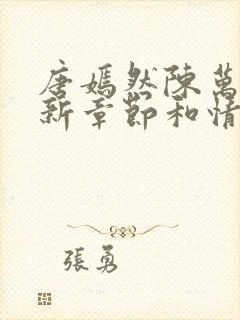 唐嫣然陳萬
新章節和情
張勇